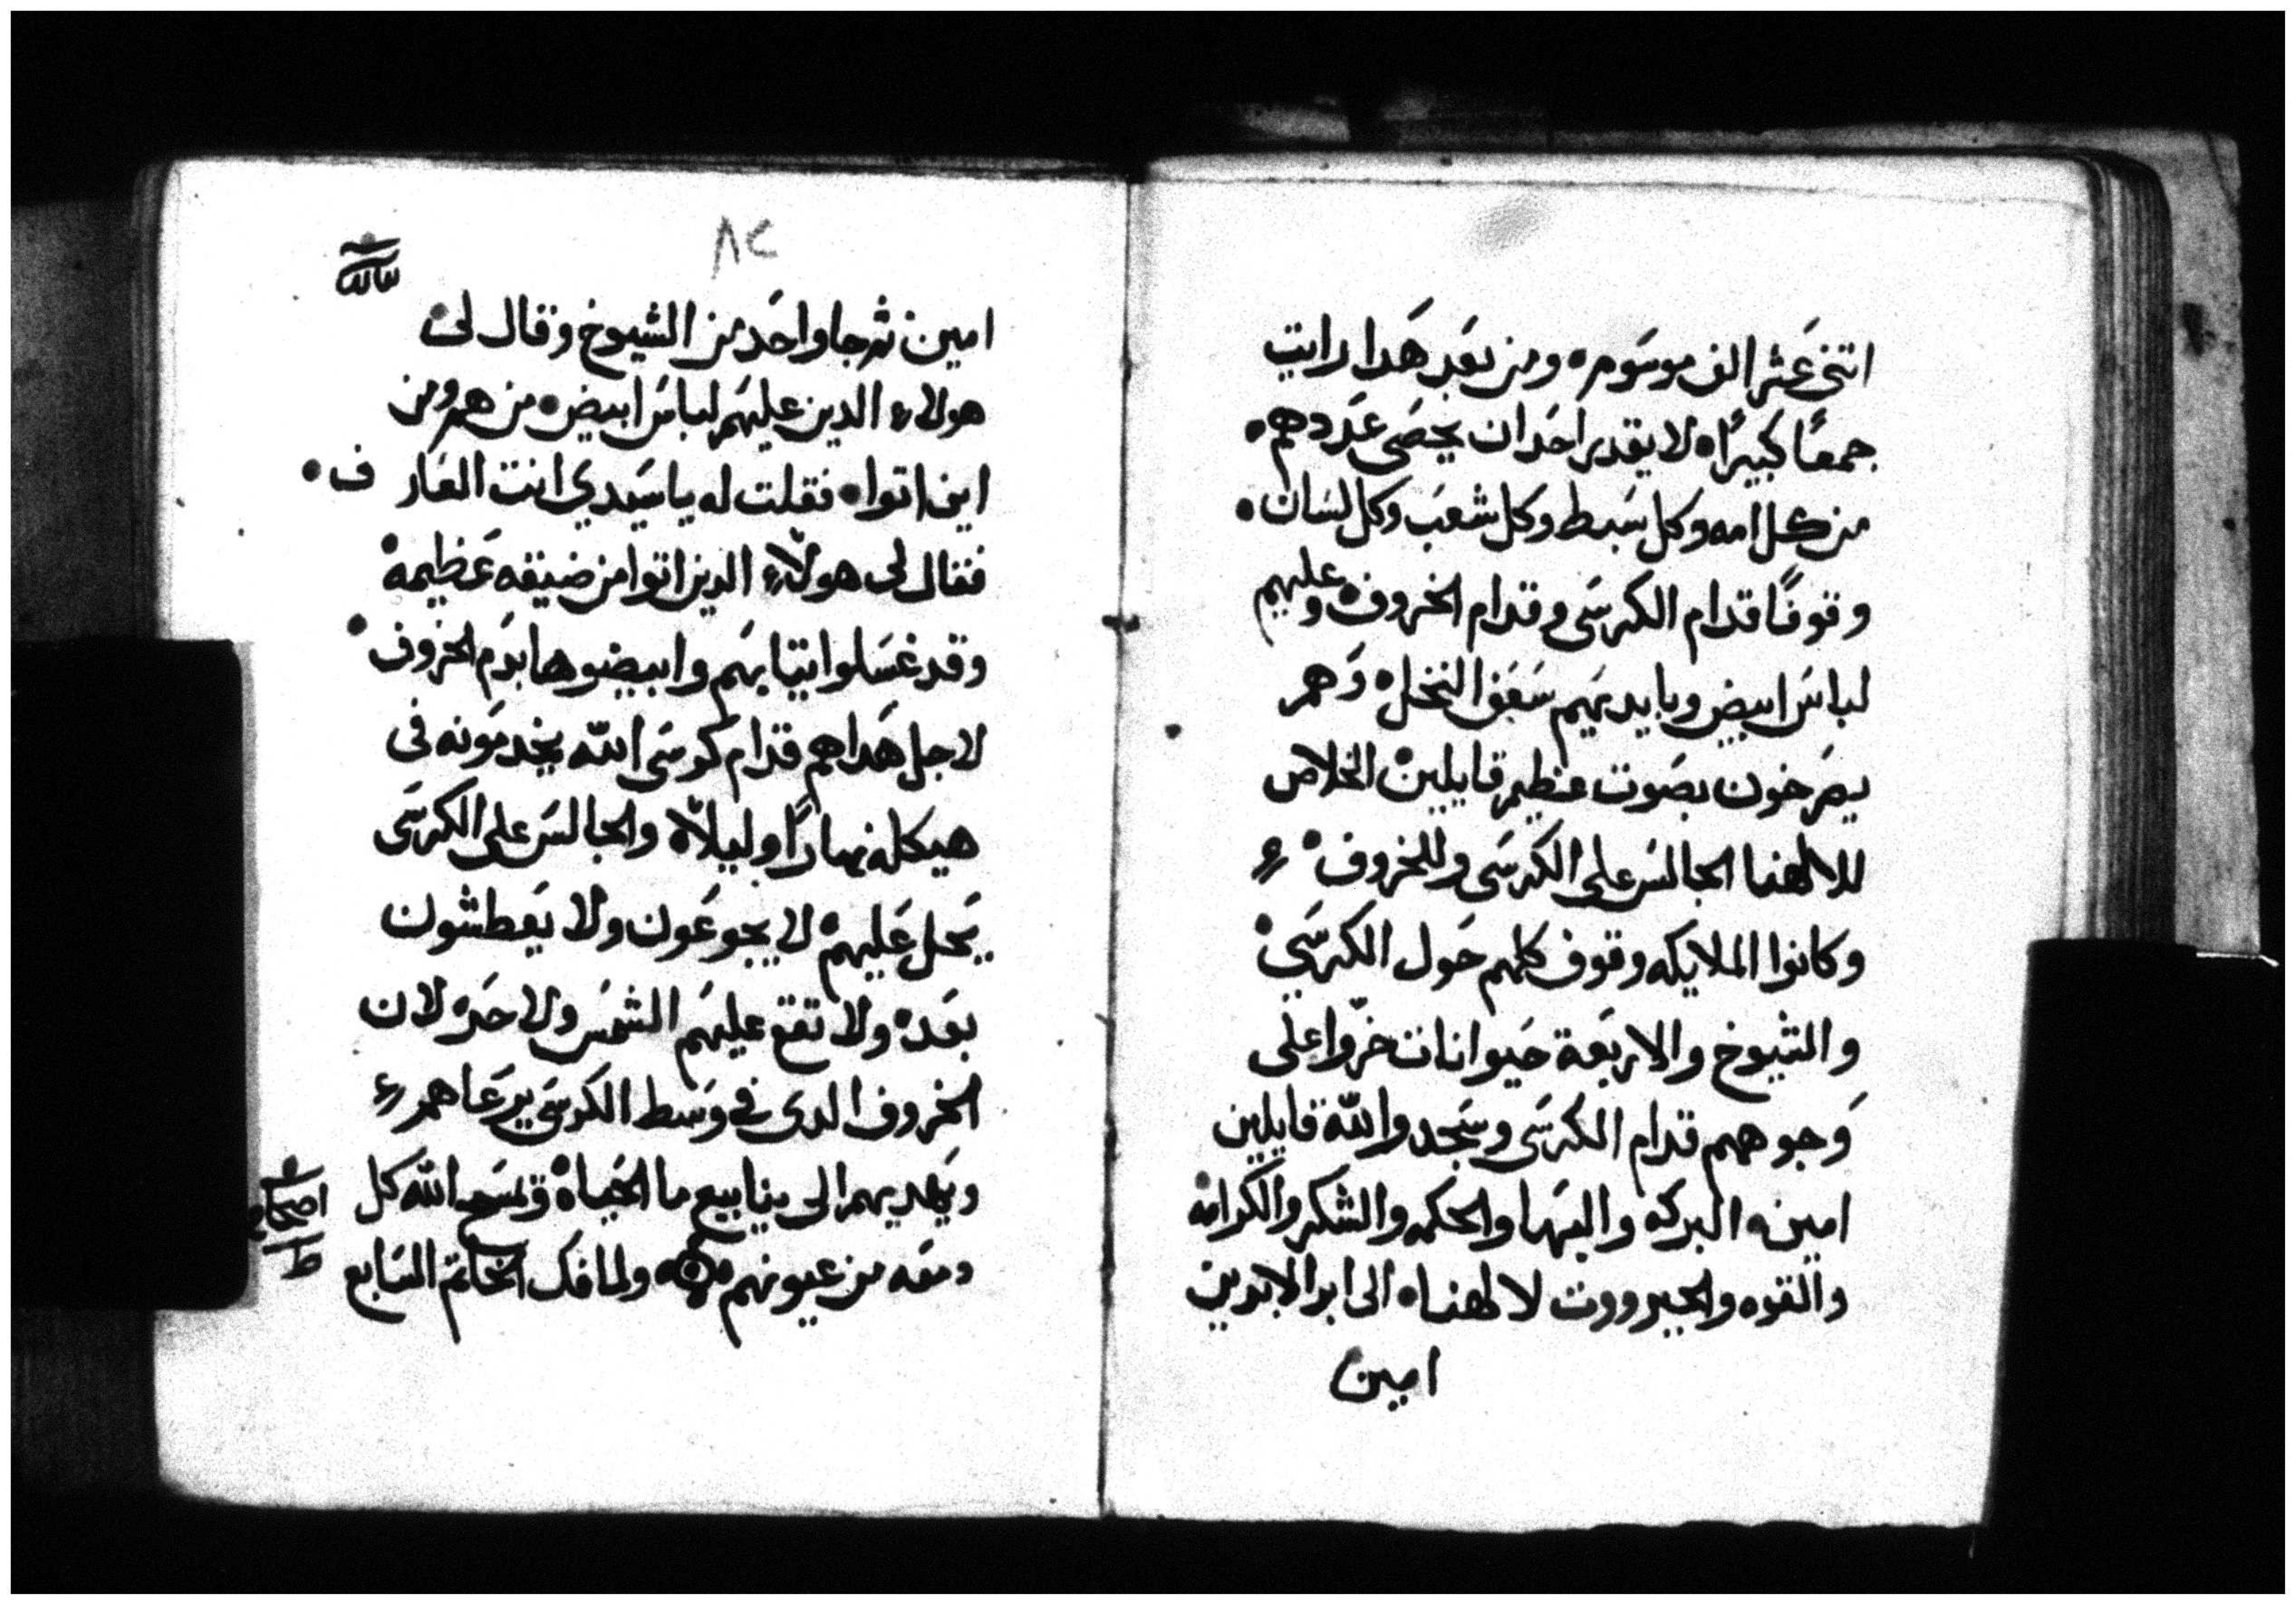 اتنى عَشر الف موسَوم ومن بعَد هَدا رايت
جمعًا كبيرًا لا يقدر احَد ان يحصَى عَددهم
من كل امه وكل سَبط وكل شعَب وكل لسَان
وقوفًا قدام الكرسَى وقدام الخروف وعليهم
لباسَ ابيض وبايديهَم سَعَف النخل وَهم
يصَرخون بصَوت عظيم قايلين الخلاص
للالهنا الجالسَ على الكرسَى وللخروف
وكانوا الملايكه وقوف كلهم حَول الكرسَي
والشيوخ والاربَعة حَيوانات خرّوا على
وَجوههم قدام الكرسَى وسَجدوا لله قايلين
امين البركه والبهَا والحكمه والشكر والكرامه
والقوه والجبرووت لالهنا الى ابد الابدين
امين
٨٢
امين ثم جا واحَد من الشيوخ وقال لى
هولاء الدين عليهَم لباسَ ابيض من هم ومن
اين اتوا فقلت له يا سَيدي انت العَارف
فقال لى هولاء الدين اتوا من ضيقه عَظيمه
وقد غسَلوا تيابهَم وابيضوها بدَم الخروف
لاجل هَدا هم قدام كرسَى الله يخدمَونه فى
هيكله نهارًا وليلاً والجالسَ على الكرسَى
يَحل عَليهم لا يجوعَون ولا يَعطشون
بعَد ولا تقع عليهَم الشمسَ ولا حَر لان
الخروف الدى فى وسَط الكرسَى يرعَاهم
ويَهديهم الى ينابيع ما الحَياة ويمسَح الله كل
دمعَه من عيونهم ولما فك الخاتم السَابع
اصحاح
ط